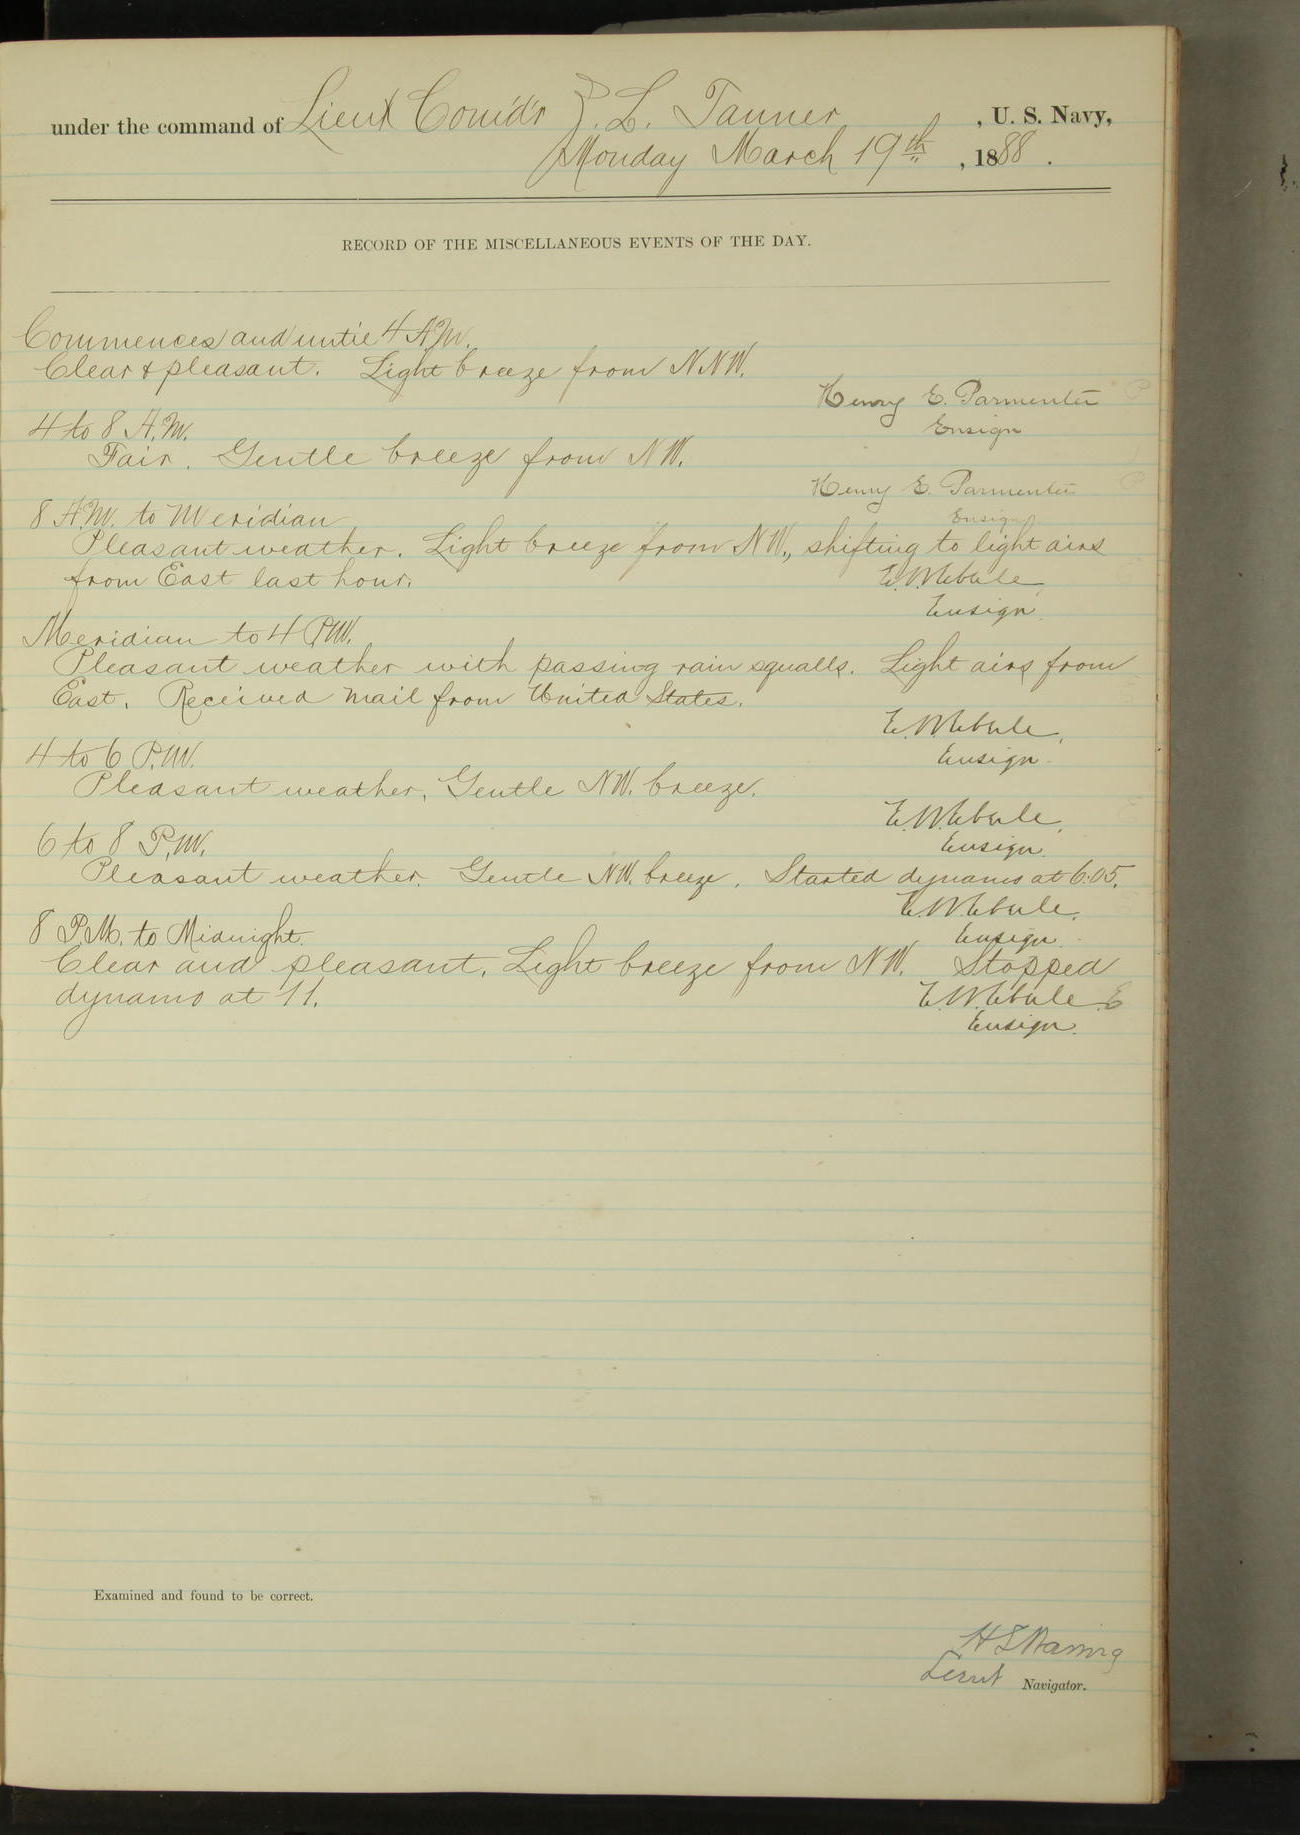 under the command of Lieut Comd'r Z. L. Tanner, U. S. Navy,
Monday March 19th, 1888.
RECORD OF THE MISCELLANEOUS EVENTS OF THE DAY.
Commences and until 4 A.M.
Clear & pleasant. Light breeze from N.N.W.
Henry E. Parmenter
Ensign
4 to 8 A.M.
Fair. Gentle breeze from N.W.
Henry E. Parmenter
Ensign
8 A.M. to Meridian
Pleasant weather. Light breeze from N.W., shifting to light airs
from East last hour.
E. W. Eberle,
Ensign.
Meridian to 4 P.M.
Pleasant weather with passing rain squalls. Light airs from
East. Received mail from United States.
E. W. Eberle,
Ensign.
4 to 6 P.M.
Pleasant weather. Gentle N.W. breeze.
E. W. Eberle,
Ensign.
6 to 8 P.M.
Pleasant weather. Gentle N.W. breeze. Started dynamo at 6.05.
E. W. Eberle,
Ensign.
8 P.M. to Midnight.
Clear and pleasant. Light breeze from N.W. Stopped
dynamo at 11.
E. W. Eberle
Ensign.
Examined and found to be correct.
H S Waring
Lieut Navigator.